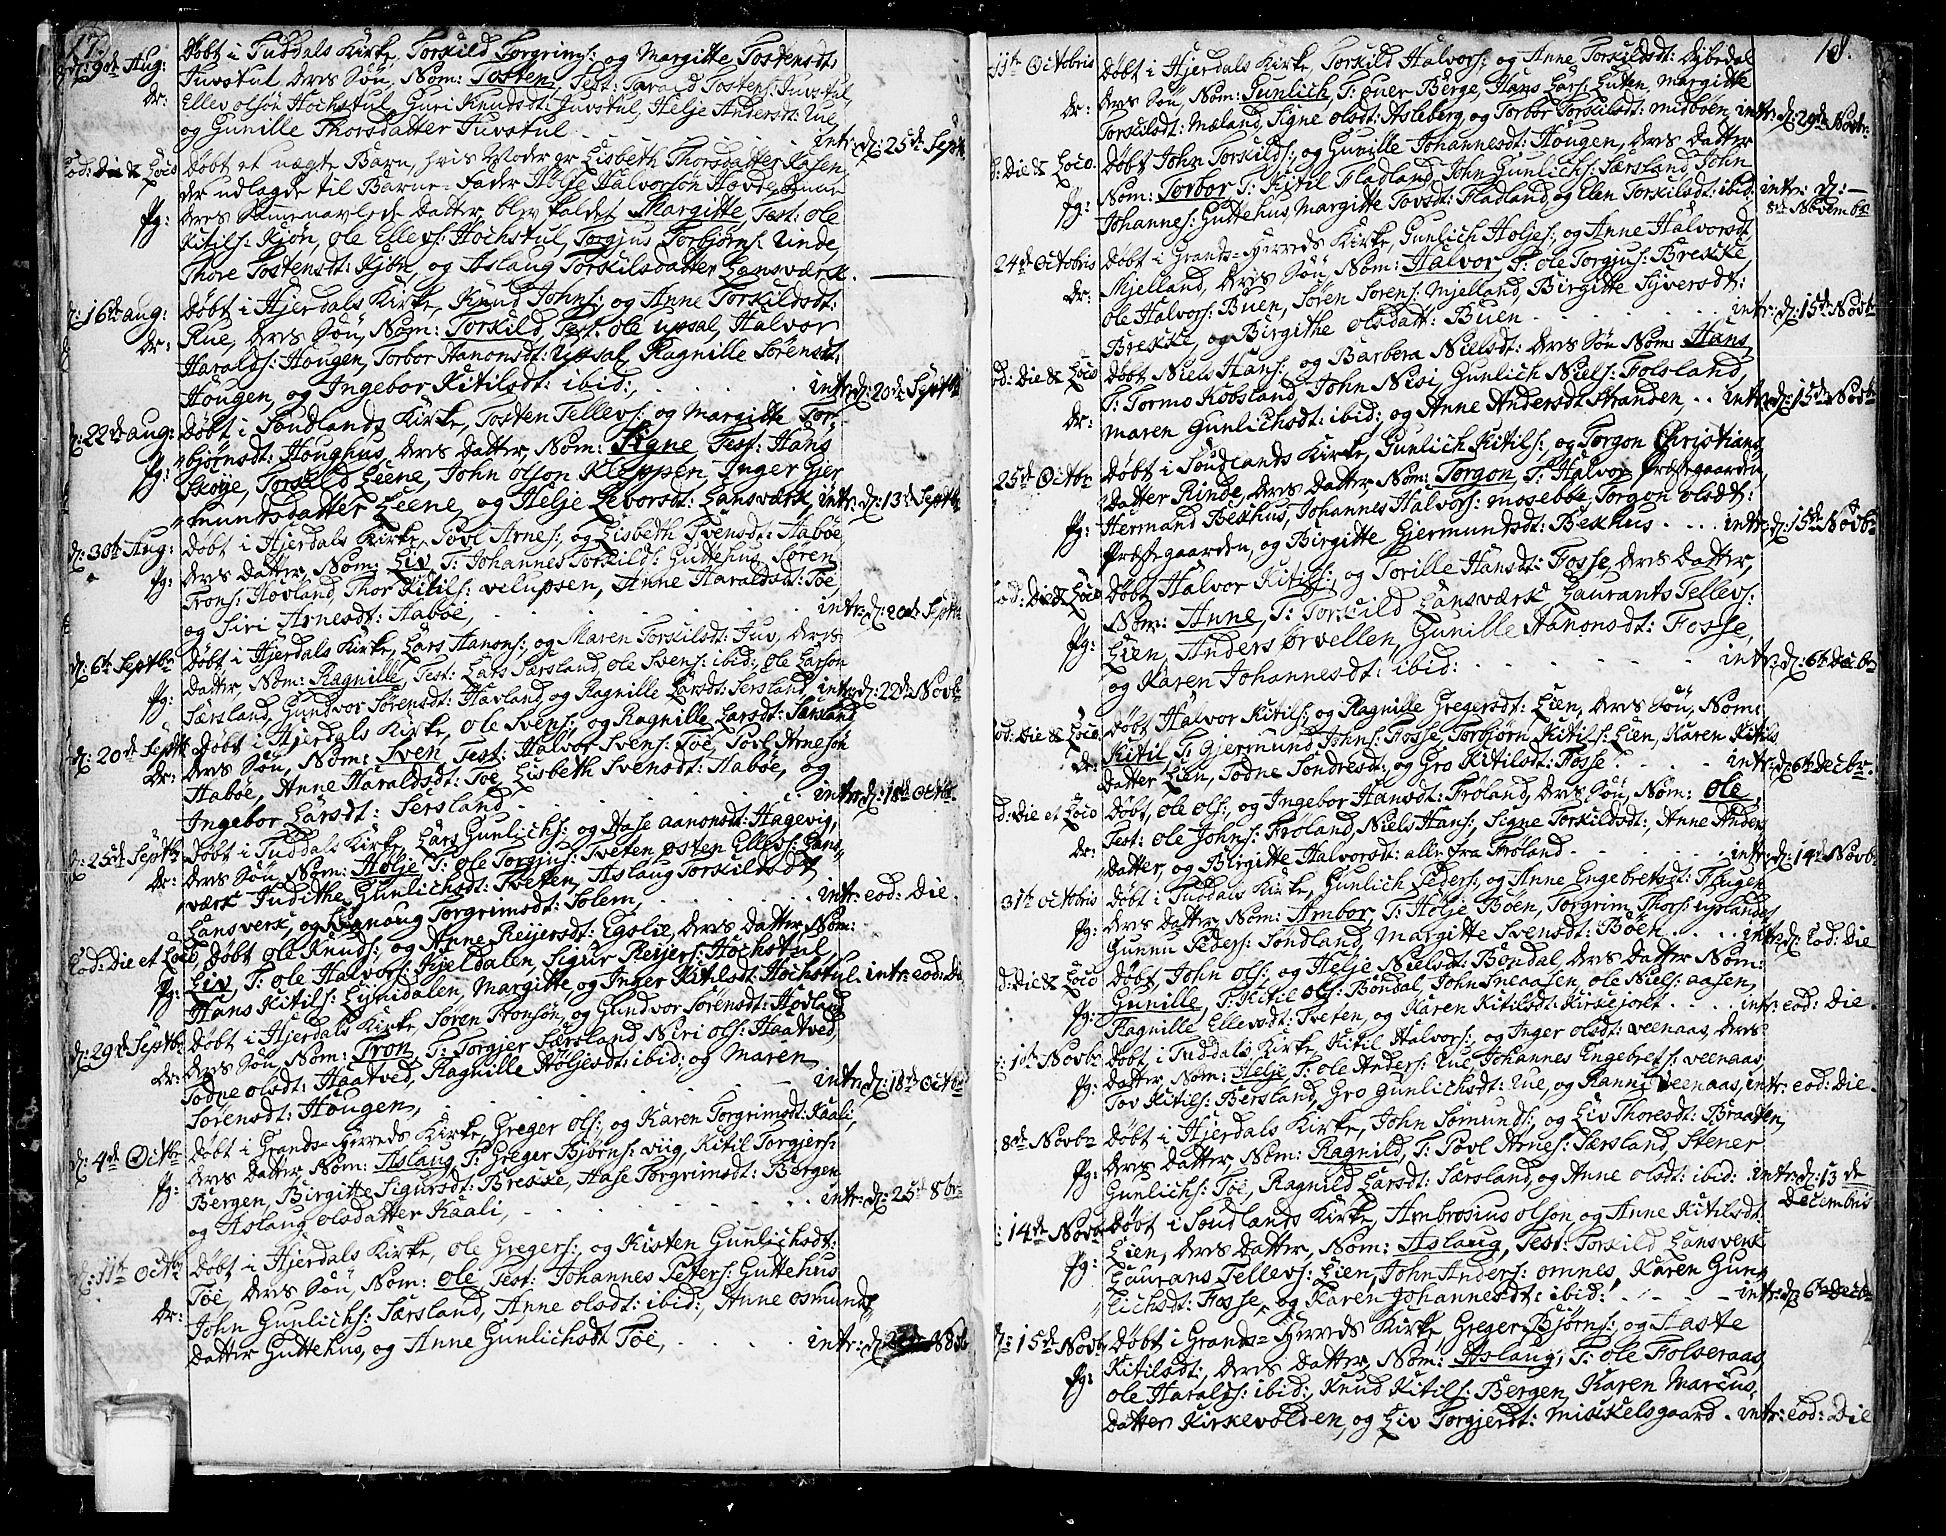 17.
d: 9de Aug:
Døbt i Tuddals Kirke, Torkild Torgrims: og Margitte Tostensdt:
Juvstul, deris Søn, Nom: Tosten, Test: Tarald Tostens: Juvstul,
dr:
Ellev olsön Hochstul, Guri Knudsdt: Juvstul, Helje Andersdt: Rue,
og Gunille Thorsdatter Juvstul. intr: d: 25de Septbr
Eod: Die & Loco
Døbt et uægte Barn, hvis Moder er Lisbeth Thorsdatter Kaasen,
der udlagde til Barne-Fader Hølje Halvorsön Hovde,
pg:
deris sammenavlede Datter, blev kaldet Margitte, Test: ole
Kitils: Kjøn, ole Ellevs: Hochstul, Torgjus Torbjørns: Linde,
Thore Tostensdt: Kjøn, og Aslaug Torkilsdatter Lansværk.
d: 16de aug:
Døbt i Hjerdals Kirke, Knud Johns: og Anne Torkildsdt:
dr:
Rue, deris Søn, Nom: Torkild, Test: ole upsal, Halvor
Haralds: Hougen, Torbor Hanonsdt: Upsal, Ragnille Sørensdt:
Hougen, og Ingebor Kitilsdt: ibid:, intr: d: 20de Septbr
d: 22de aug:
Døbt i Soudlands Kirke, Tosten Tellevs: og Margitte Tor-
pg:
bjørnsdt: Houghus, deris Datter, Nom: Signe, Test: Hans
Skoje, Torkild Leene, John olson Kleppen, Inger Gjer
mundsdatter Leene, og Helje Levorsdt: Lansværk, intr: d: 13de Septbr
d: 30te Aug:
Døbt i Hjerdals Kirke, Povl Arnes: og Lisbeth Svensdt: Haboe
pg:
deris Datter, Nom: Liv, T: Johannes Torkilds: Guttehus, Søren
Trons: Hovland, Thor Kitils: velupsen, Anne Haraldsdt: Toe,
og Siri Arnesdt: Haboe, intr: d: 20de Septbr
d: 6te Septbr
Døbt i Hjerdals Kirke, Lars Hanons: og Maren Torkilsdt: Juv, deris
pg:
Datter, Nom: Ragnille, Test: Lars Særsland, ole Svens: ibid:, ole Larson
Særsland, Gundvor Sørensdt: Havland, og Ragnille Larsdt: Sersland, intr: d: 22de Novbr
d: 20de Septbr
Døbt i Hjerdals Kirke, ole Svens: og Ragnille Larsdt: Særsland
dr:
deris Søn, Nom: Sven, Test: Halvor Svens: Toe, Povl Arnesøn
Haboe, Anne Haraldsdt: Toe, Lisbeth Svensdt: Haboe, og
Ingebor Larsdt: Sersland intr: d: 18de Octbr.
d: 25de Septbr
Døbt i Tuddals Kirke, Lars Gunlichs: og Hase aanonsdt: Hagevig,
dr:
deris Søn, Nom: Hølje, T: ole Torgjus: Tveten, østen Ellevs: Lans-
værk, Judithe Gunlichsdt: Tveten, Aslaug Torkildsdt
Lansverk, og Torgrimsdt: Solem, intr: eod: Die.
Eod: Die et Loco
Døbt ole Knuds: og Anne Reijersdt: Egslie, deris Datter, Nom:
pg:
Liv, T: ole Halvors: Kjeldalen, Sigur Reijers: Hochstul,
Hans Kitils: Lijndalen, Margitte, og Inger Kitilsdt: Hochstul. intr: eod: Die
d: 29de Septbr
Døbt i Hjerdals Kirke, Søren Tronsøn, og Gundvor Sørensdt: Hovland
dr:
deris Søn, Nom: Tron, T: Torgjer Særsland, Niri ols: Haatved,
Todne olsdt: Haatved, Ragnille Höljesdt: ibid: og Maren
Sørensdt: Hougen, intr: d: 18de Octbr
d: 4de Octbr
Døbt i Grands-Herreds Kirke, Greger ols: og Karen Torgrimsdt: Kaali,
pg:
deris Datter, Nom: Aslaug, T: Greger Bjørns: viig, Kitil Torgjers:
Bergen, Birgitte Sigursdt: Brekke, Hase Torgrimsdt: Bergen
og Aslaug olsdatter Kaali, intr: d: 25de 8br
d: 11te Octbr
Døbt i Hjerdals Kirke, ole Gregers: og Kisten Gunlichsdt:
Toe, deris Søn, Nom: ole, Test: Johannes Peters: Guttehus
dr:
John Gunlichs: Særsland, Anne olsdt: ibid:, Anne osmunds
Datter Guttehus, og Anne Gunlichsdt Toe, intr: d: 8br
18.
11te Octobris
Døbt i Hjerdals Kirke, Torkild Halvors: og Anne Torkildsdt: Dybedal
dr:
deris Søn, Nom: Gunlich, T: over Berge, Hans Lars: Luten, Margitte
Torkilsdt: Mæland, Signe olsdt: Asleberg, og Torbor Torkilsdt: midböen, intr: d: 29de Novbr:
d: Die & Loco.
Døbt John Torkilds: og Gunille Johannesdt: Hougen, deris Datter
pg:
Nom: Torbor, T: Kitil Fladland, John Gunlichs: Særsland, John
Johannes: Guttehus, Margitte Tovsdt: Fladland, og Ellen Torkilsdt: ibid: intr: d:
8de Novembr
24de Octobris
Døbt i Grands-Herreds Kirke, Gunlich Höljes: og Anne Halvorsdt
dr:
Mjelland, deris Søn, Nom: Halvor, T: ole Torgjus: Brekke,
ole Halvors: Buen, Søren Sørens: Mjelland, Birgitte Syversdt:
Brekke, og Birgithe olsdatt: Buen intr: d: 15de Novbr
od: Die & Loco
Døbt Niels Hans: og Barbera Nielsdt: deris Søn Nom: Hans,
dr:
T: Tormo Kobsland, John Nisi, Gunlich Niels: Folsland,
Maren Gunlichsdt: ibid:, og Anne Andersdt: Stranden, intr: d: 15de Novbr
25de Octbr
Døbt i Soudlands Kirke, Gunlich Kitils: og Torgon Christians
Datter Rinde, deris Datter, Nom: Torgon, T: Halvor Præstegaarden,
pg:
Hermand Bekhus, Johannes Halvors: mosebøe, Torgon olsdt:
Præstegaarden, og Birgitte Gjermundsdt: Bekhus intr: d: 15de Novbr
Eod: Die & Loco
Døbt Halvor Kitils:, og Torille Hansdt: Fosse, deris Datter,
pg:
Nom: Anne, T: Torkild Lansværk, Laurants Tellevs:
Lien, Anders ørvellen, Gunille Hanonsdt: Fosse,
og Karen Johannesdt: ibid: intr: d: 6te Decbr
od: Die & Loco.
Døbt Halvor Kitils: og Ragnille Gregersdt: Lien, deris Søn, Nom:
dr:
Kitil, T: Gjermund Johns: Fosse, Torbjørn Kitils: Lien, Karen Kitils
Datter Lien, Todne Sondresdt:, og Gro Kitilsdt: Fosse. intr: d: 6te Decbr.
d: Die et Loco
Døbt, ole ols:, og Ingebor Hansdt: Frøland, deris Søn, Nom: ole,
dr:
Test: ole Johns: Frøland, Niels Hans:, Signe Torkildsdt:, Anne Anders
Datter, og Birgitte Halvorsdt: alle fra Frøland intr: d: 14de Novbr
31te octobris
Døbt i Tuddals Kirke, Gunlich Peders: og Anne Engebretsdt: Haugen
pg:
deris Datter, Nom: Ambor, T: Hölje Böen, Torgrim Thors: uplandet
Gunnu Peders: Sondland, Margitte Svensdt: Böen intr: d: Eod: Die
d: Die & Loco
Døbt, John ols: og Helje Nielsdt: Bondal, deris Datter Nom:
pg:
Gunille, T: Kitil ols: Bondal, John Sneaasen, ole Niels: aasen,
Ragnille Ellevsdt: Tveten, og Karen Kitilsdt: Kirkejoret intr: eod: Die.
: 1ste Novbr
Døbt i Tuddals Kirke, Kitil Halvors: og Inger olsdt: veenaas, deris
pg:
Datter, Nom: Helje, T: ole Anders: Rue, Johannes Engebrets: veenaas
Tov Kitils: Bersland, Gro Gunlichsdt: Rue, og Ranni veenaas, intr: eod: Die
8de Novbr
Døbt i Hjerdals Kirke, John Somunds: og Liv Thoresdt: Braaten,
pg:
deris Datter, Nom: Ragnild, T: Povl Arnes: Særsland, Stener
Gunlichs: Toe, Ragnild Larsdt: Særsland, og Anne olsdt: ibid: intr: d: 13de
Decembris
: 14de Novbr
Døbt i Soudlands Kirke, Ambrosius olson og Anne Kitilsdt:
pg:
Lien, deris Datter, Nom: Aslaug, Test: Torkild Lansverk
Laurans Tellevs: Lien, John Anders: omnes, Karen Gun-
lichsdt: Fosse, og Karen Johannesdt: ibid: intr: d: 6te Decbr
d: 15de Novbr
Døbt i Grands-Herreds Kirke Greger Bjørns: og Haste
pg:
Kitilsdt:, deris Datter, Nom: Aslaug, T: ole Folseraas,
ole Haralds: ibid:, Knud Kitils: Bergen, Karen Marcus
Datter Kirkevolden, og Liv Torgjersdt: Mikkelsgaard. intr: eod: Die